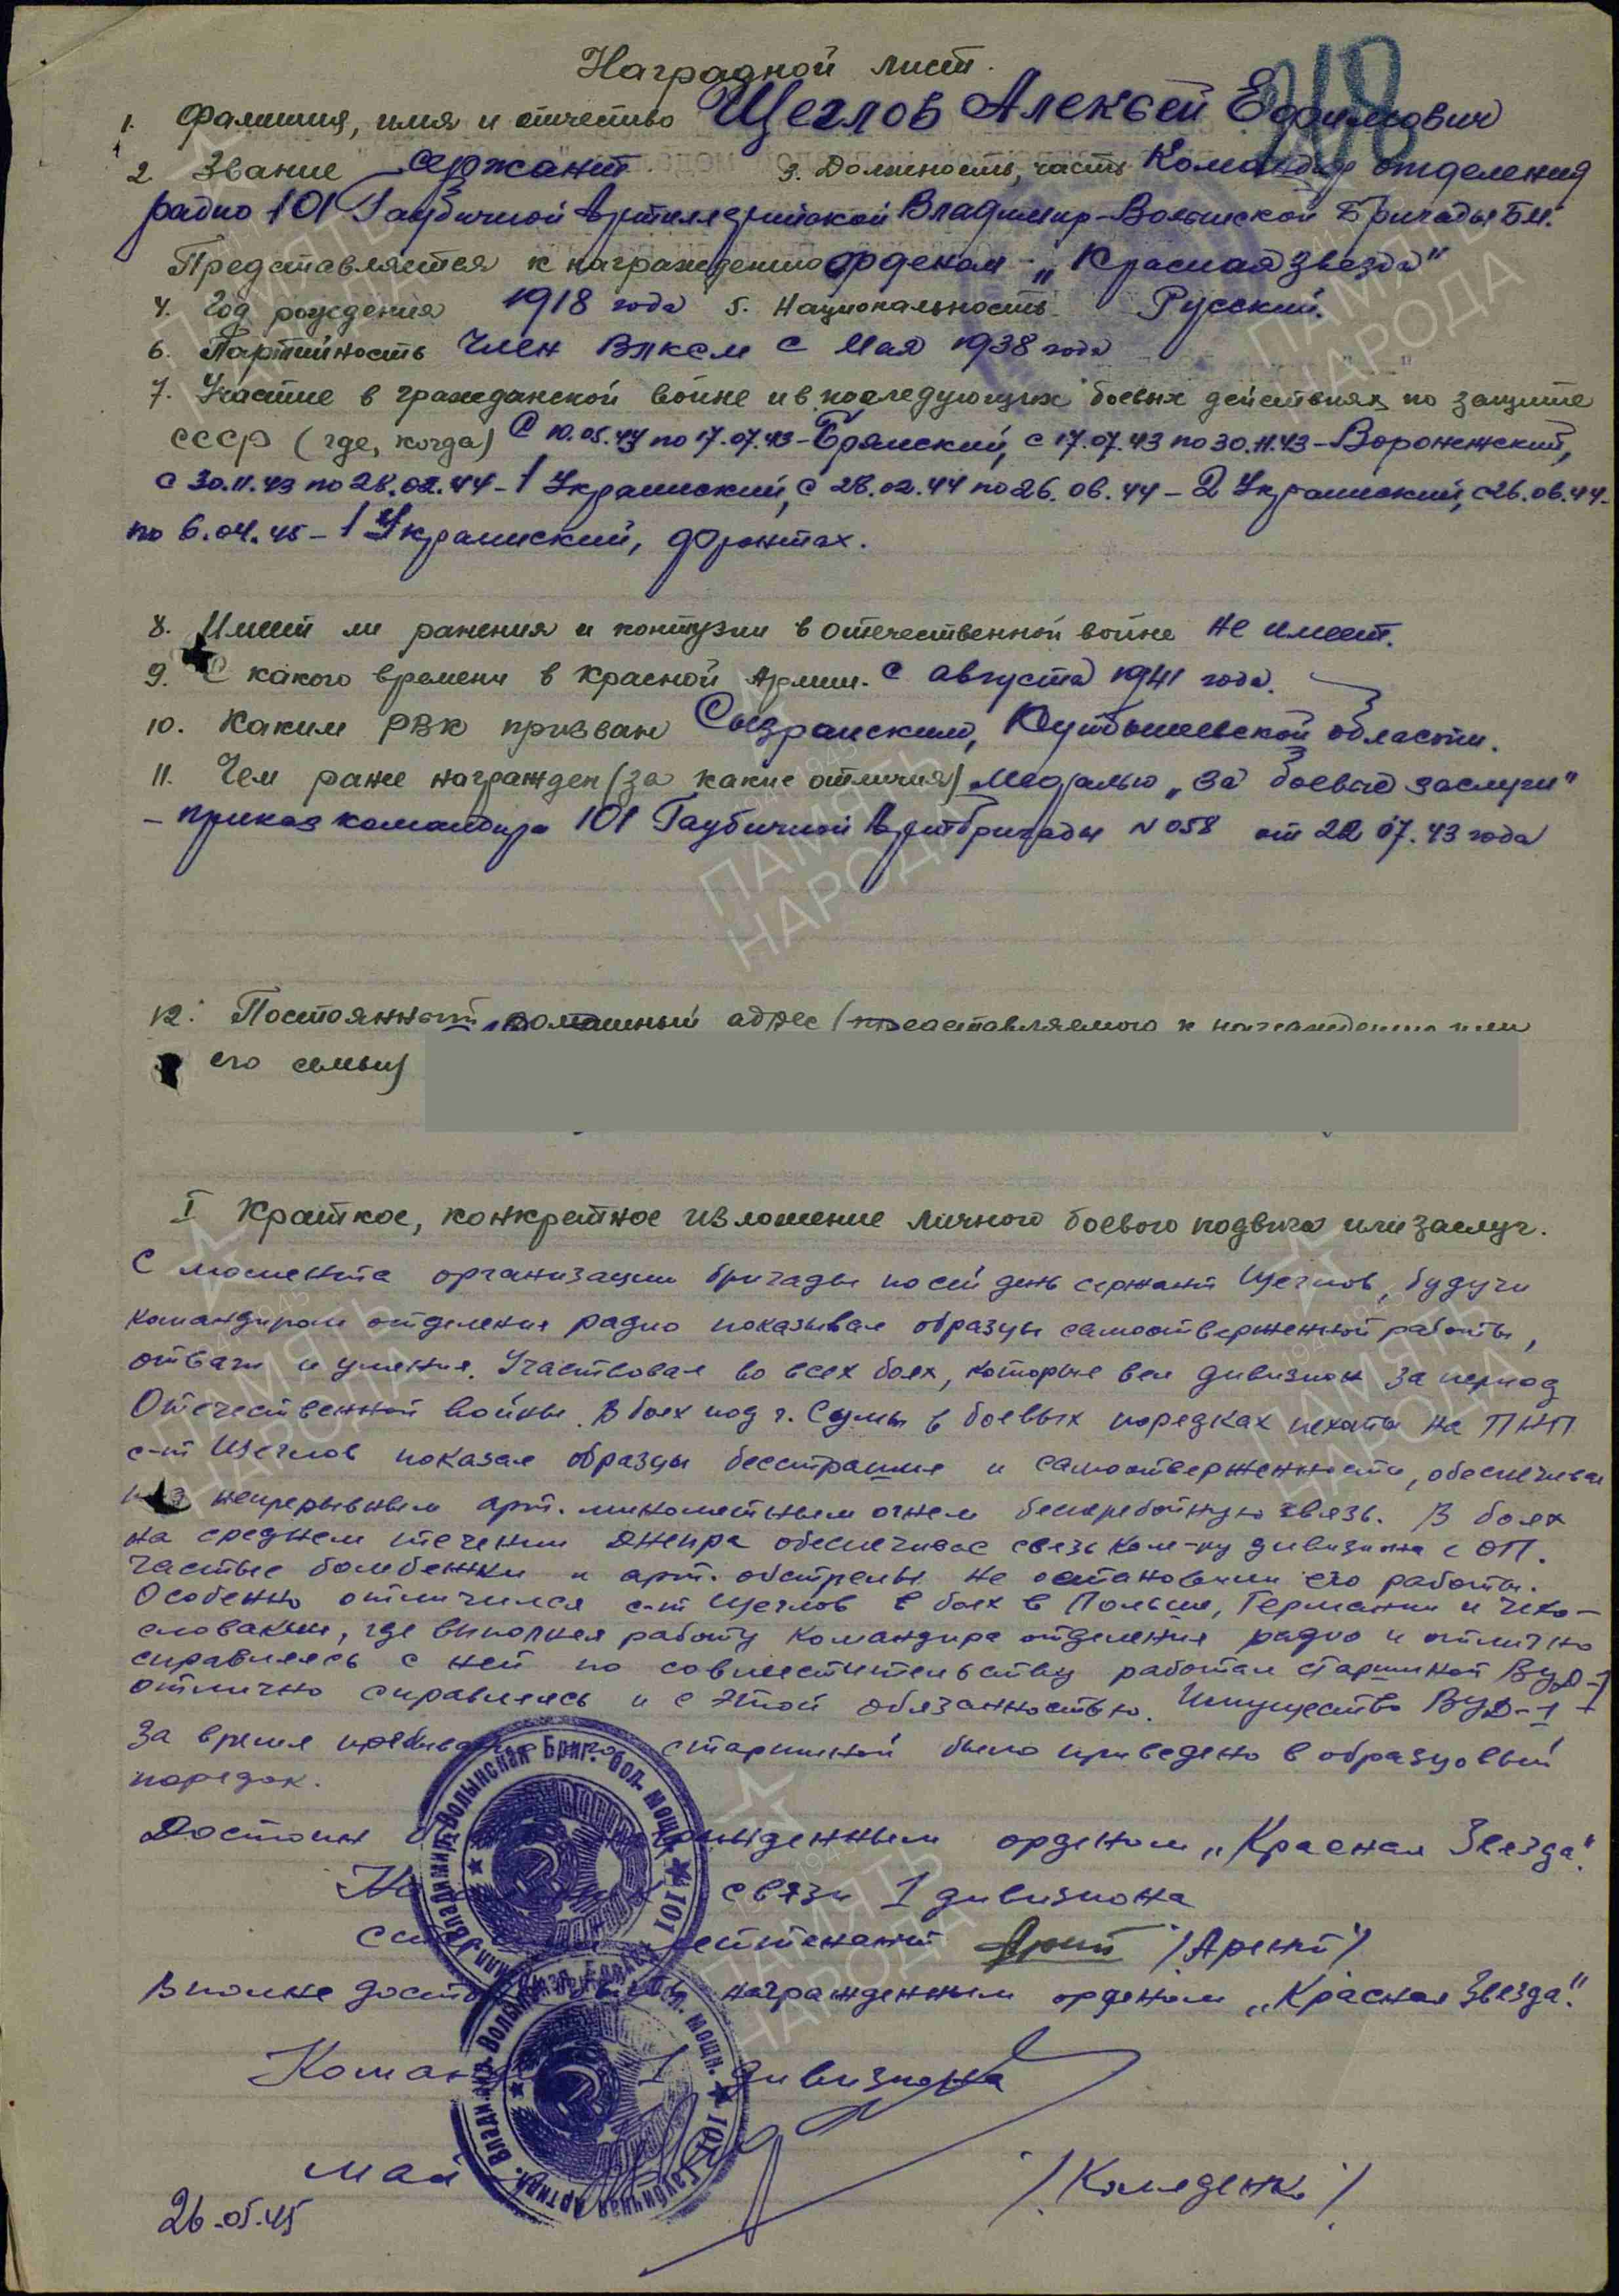 Наградной лист.
218
1. Фамилия, имя и отчество Щеглов Алексей Ефимович
2. Звание сержант 3. Должность, часть Командир отделения
радио 101 Гаубичной Артиллерийской Владимир-Волынской Бригады Б.М.
Представляется к награждению орденом - „Красная звезда"
4. Год рождения 1918 года 5. Национальность Русский.
6. Партийность Член ВЛКСМ с Мая 1938 года
7. Участие в гражданской войне и в последующих боевых действиях по защите
СССР (где, когда) С 10.05.43 по 17.07.43 - Брянский, с 17.07.43 по 30.11.43 - Воронежский,
с 30.11.43 по 28.02.44 - 1 Украинский, с 28.02.44 по 26.06.44 - 2 Украинский, с 26.06.44.
по 6.04.45 - 1 Украинский, фронтах.
8. Имеет ли ранения и контузии в отечественной войне Не имеет.
9. С какого времени в Красной Армии. С августа 1941 года.
10. Каким РВК призван Сызранским, Куйбышевской области.
11. Чем ранее награжден (за какие отличия) Медалью „За боевые заслуги"
- приказ командира 101 Гаубичной Артбригады N 058 от 22 07.43 года
12. Постоянный домашний адрес (представляемого к награждению или
его семьи)
I Краткое, конкретное изложение личного боевого подвига или заслуг.
С момента организации бригады по сей день сержант Щеглов, будучи
командиром отделения радио показывал образцы самоотверженной работы,
отваги и умения. Участвовал во всех боях, которые вел дивизион за период
Отечественной войны. В боях под г. Сумы в боевых порядках пехоты на ПНП
с-т Щеглов показал образцы бесстрашия и самоотверженности, обеспечивая
под непрерывным арт. минометным огнем бесперебойную связь. В боях
на среднем течении Днепра обеспечивал связь ком-ру дивизиона с ОП.
Частые бомбежки и арт. обстрелы не остановили его работы.
Особенно отличился с-т Щеглов в боях в Польше, Германии и Чехо-
словакии, где выполняя работу командира отделения радио и отлично
справляясь с ней по совместительству работал старшиной ВУД-1
отлично справляясь и с этой обязанностью. Имущество ВУД-1
за время пребывания его старшиной было приведено в образцовый
порядок.
Достоин награжденным орденом „Красная Звезда".
Начальник связи 1 дивизиона
старший лейтенант /Арент/
Вполне достоин быть награжденным орденом „Красная Звезда".
Командир 1 дивизиона
майор /Коляденко/
26.05.45
Артил. Владимир. Волынская Бриг. бол. мощн. ★ 101
Артил. Владимир. Волынская Бриг. бол. мощн. ★ 101 Гаубичная
ПАМЯТЬ НАРОДА
1941-1945